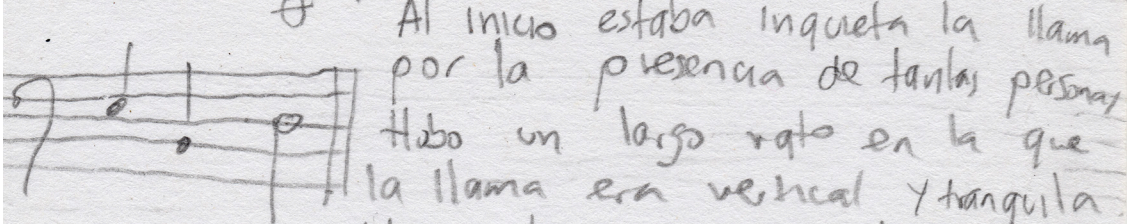 Al inicio estaba inqueta la llama
por la presencia de tantas personas
Hobo un largo rato en la que
la llama era vertical y tranquila